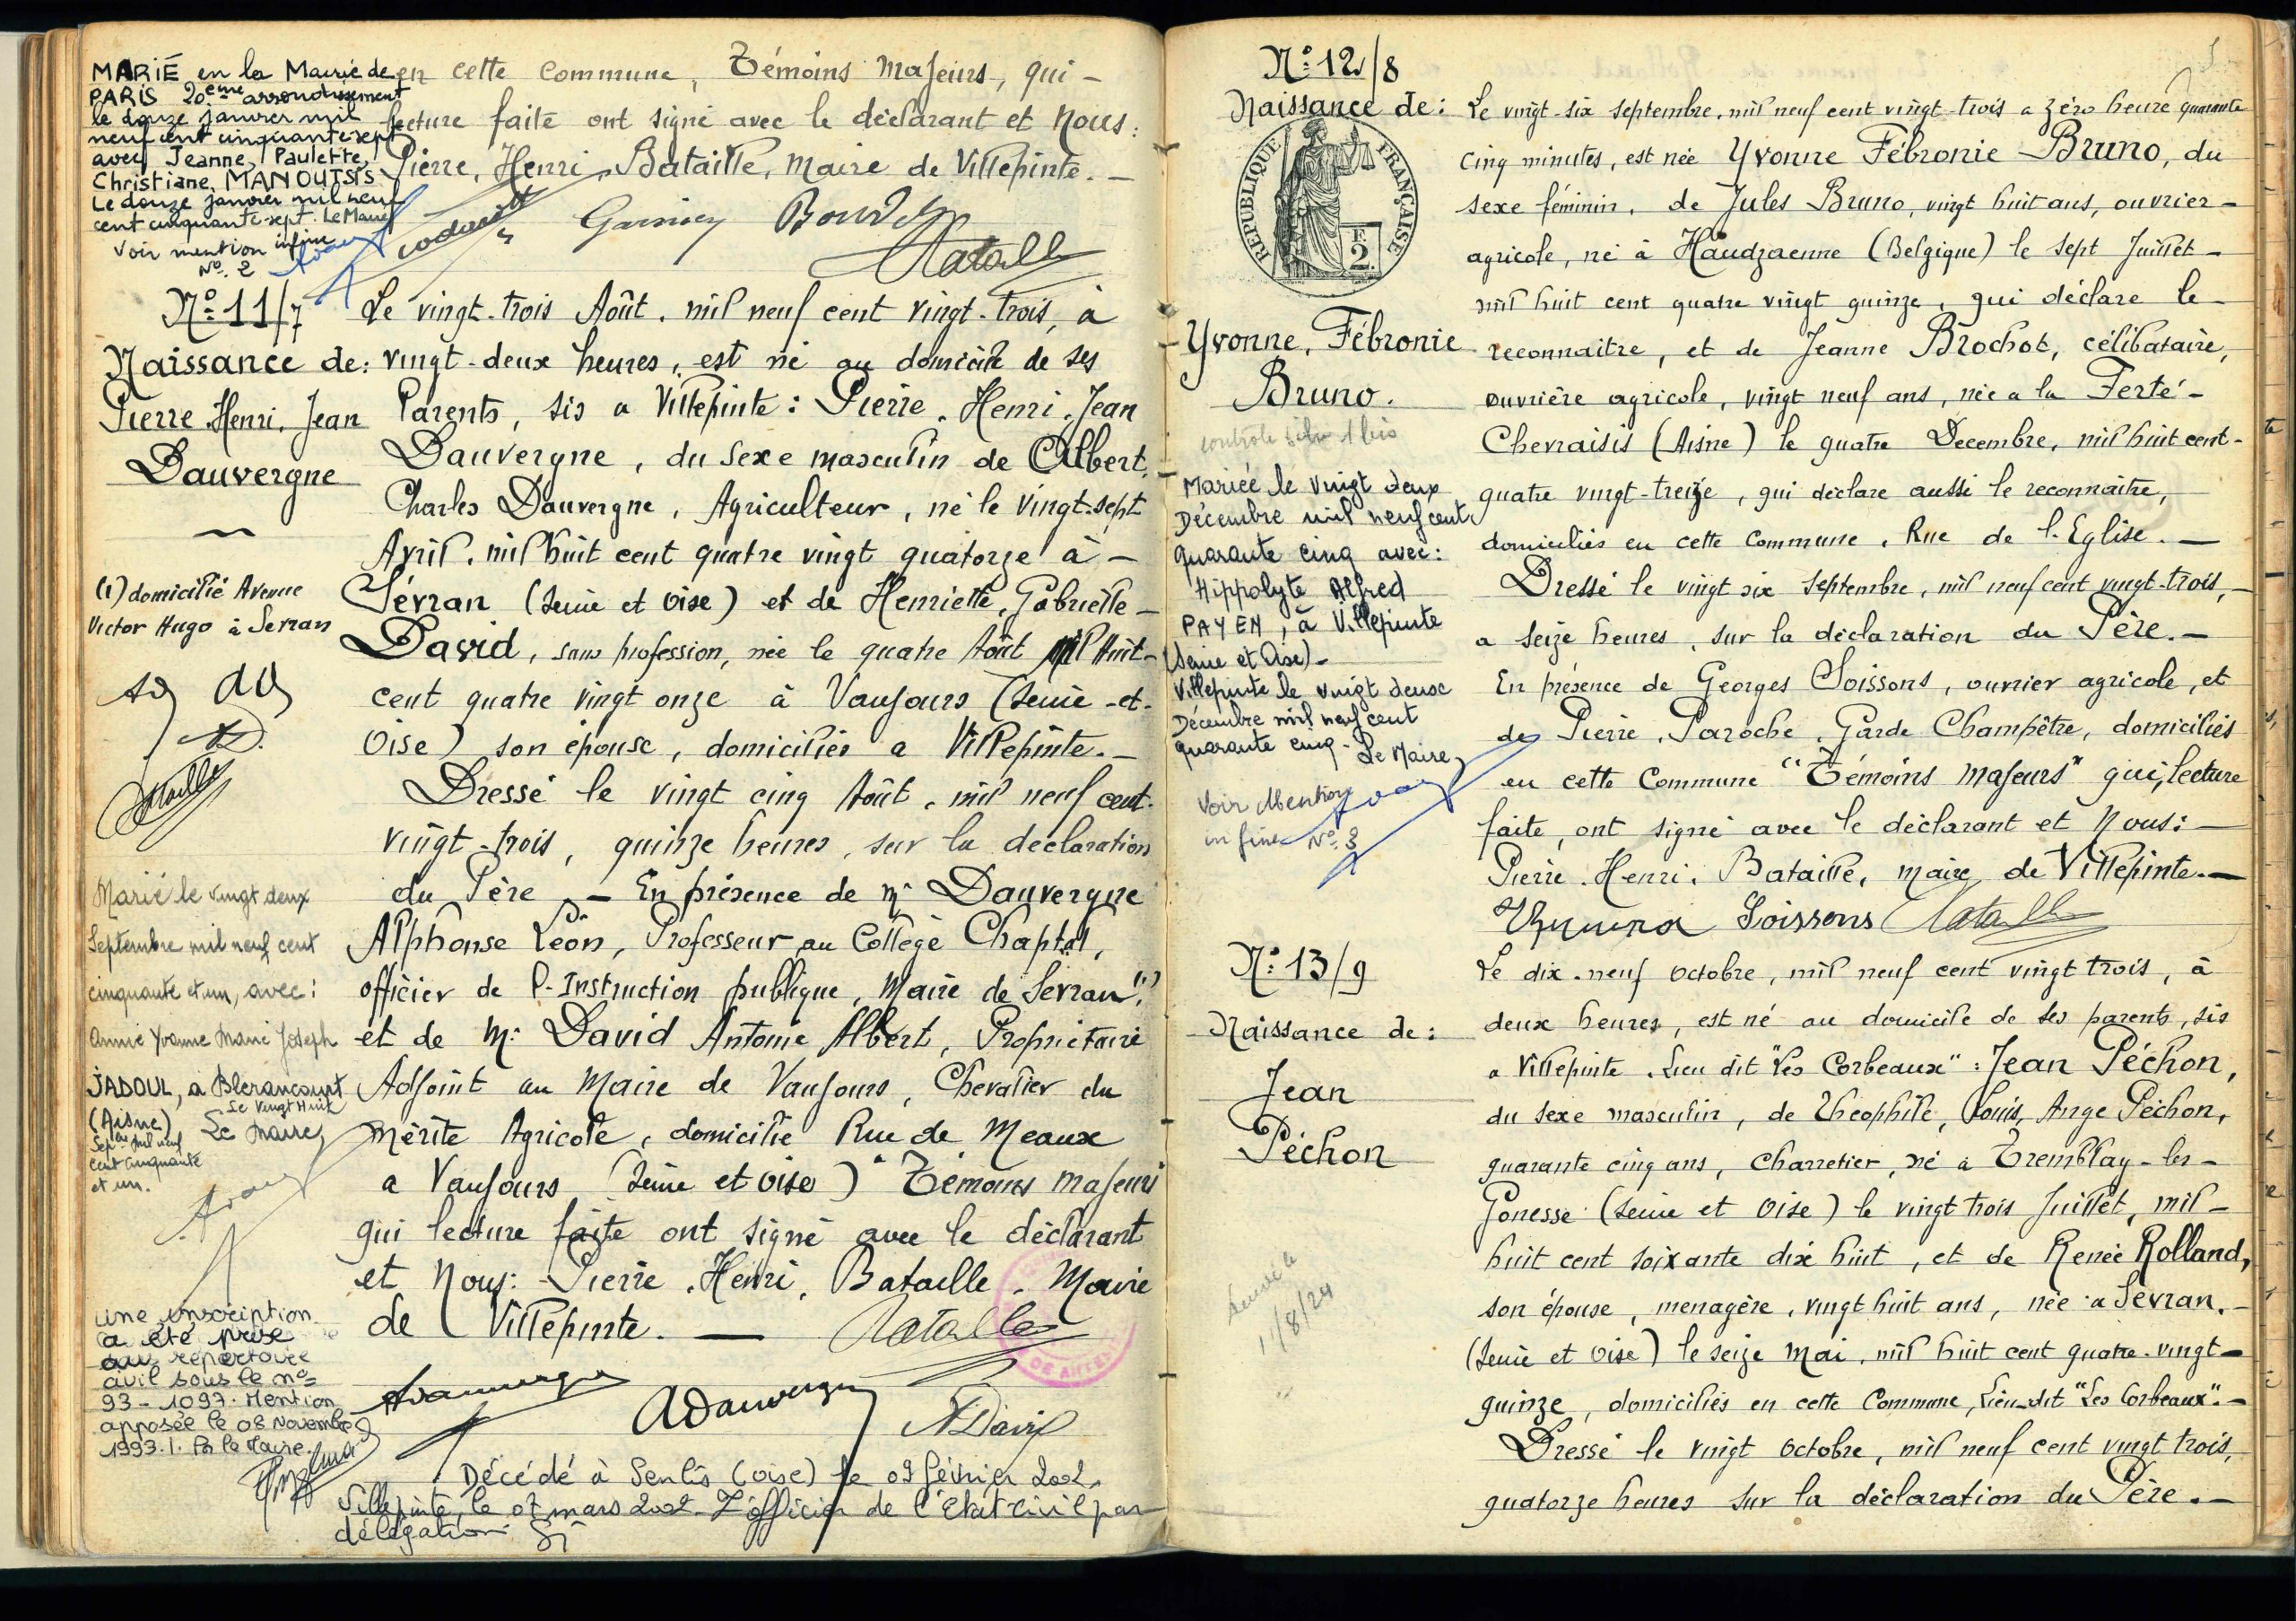 MARIÉ en la Mairie de
PARIS 20ème arrondissement
le douze janvier mil
neuf cent cinquante sept
avec Jeanne, Paulette,
Christiane, MANOUTSIS
Le douze janvier mil neuf
cent cinquante-sept. Le Maire
Voir mention infine
No. 2
en cette Commune, Témoins Majeurs, qui -
lecture faite ont signé avec le déclarant et Nous:
Pierre, Henri, Bataille, Maire de Villepinte. -
Bataille
No: 11/7
Naissance de:
Pierre. Henri. Jean
Dauvergne
(1) domicilié Avenue
Victor Hugo à Sevran
AD
Marié le vingt deux
Septembre mil neuf cent
cinquante et un, avec:
Annie Yvonne Marie Joseph
JADOUL, à Blerancourt
(Aisne) Le Vingt Huit
Sepbre mil neuf Le Maire,
cent cinquante
et un.
une inscription
a été prise
au répertoire
civil sous le no=
93 - 1097. Mention
apposée le 08 Novembre
1993. /. Pr le Maire.
Le vingt-trois Août. mil neuf cent vingt-trois, à
vingt-deux heures, est né au domicile de ses
Parents, sis a Villepinte: Pierre. Henri. Jean
Dauvergne, du Sexe masculin de Albert,
Charles Dauvergne, Agriculteur, né le vingt-sept
Avril. mil huit cent quatre vingt quatorze à -
Sévran (Seine et Oise) et de Henriette, Gabrielle -
David, sans profession, née le quatre Août mil huit -
cent quatre vingt onze à Vaujours (Seine-et-
Oise) son épouse, domiciliés a Villepinte. -
Dressé le vingt cinq Août, mil neuf cent.
vingt-trois, quinze heures, sur la declaration
du Père, - En présence de Mr Dauvergne
Alphonse Léon, Professeur au Collège Chaptal,
officier de l'Instruction publique, Maire de Sevran (1)
et de Mr David Antoine Albert, Propriétaire
Adjoint au Maire de Vaujours, Chevalier du
Mérite Agricole, domicilié Rue de Meaux
a Vaujours (Seine et Oise) Témoins Majeurs
qui lecture faite ont signé avec le déclarant
et Nous: Pierre. Henri. Bataille. Maire
de Villepinte. - Bataille
ADauvergne
ADavid
Décédé à Senlis (Oise) le 09 février 2002
Villepinte, le 07 mars 2002. L'officier de l'Etat-Civil par
délégation.
No: 12/8
Naissance de:
RÉPUBLIQUE FRANÇAISE
F.
2.
Yvonne, Fébronie
Bruno.
Mariée le vingt deux
Décembre mil neuf cent
quarante cinq avec:
Hippolyte Alfred
PAYEN, à Villepinte
(Seine et Oise) -
Villepinte le vingt deux
Décembre mil neuf cent
quarante cinq - Le Maire,
Voir Mention
in fine No. 3
Le vingt-six Septembre, mil neuf cent vingt-trois a zéro heure quarante
cinq minutes, est née Yvonne Fébronie Bruno, du
sexe féminin. de Jules Bruno, vingt huit ans, ouvrier -
agricole, né à Haudzaenne (Belgique) le Sept Juillet -
mil huit cent quatre vingt quinze, qui déclare le -
reconnaitre, et de Jeanne Brochot, célibataire,
ouvrière agricole, vingt neuf ans, née a la Ferté -
Chevraisis (Aisne) le quatre Decembre, mil huit cent -
quatre vingt-treize, qui déclare aussi le reconnaitre,
domiciliés en cette Commune. Rue de l'Eglise. -
Dressé le vingt six Septembre, mil neuf cent vingt-trois, -
a seize heures, sur la déclaration du Père. -
En présence de Georges Soissons, ouvrier agricole, et
de Pierre. Paroche. Garde Champêtre, domiciliés
en cette Commune "Témoins Majeurs" qui, lecture
faite, ont signé avec le déclarant et Nous: -
Pierre. Henri. Bataille, Maire de Villepinte. -
Soissons Bataille
No: 13/9
Naissance de:
Jean
Péchon
11/8/24
Le dix-neuf Octobre, mil neuf cent vingt trois, à
deux heures, est né au domicile de ses parents, sis
a Villepinte. Lieu dit "Les Corbeaux": Jean Péchon,
du sexe masculin, de Théophile, Louis, Ange Péchon,
quarante cinq ans, Charretier, né à Tremblay-les-
Gonesse (Seine et Oise) le vingt trois Juillet, mil -
huit cent soixante dix huit, et de Renée Rolland,
son épouse, menagère, vingt huit ans, née a Sevran. -
(Seine et Oise) le seize Mai, mil huit cent quatre-vingt -
quinze, domiciliés en cette Commune, Lieu-dit "Les Corbeaux". -
Dressé le vingt Octobre, mil neuf cent vingt trois,
quatorze heures sur la déclaration du Père. -